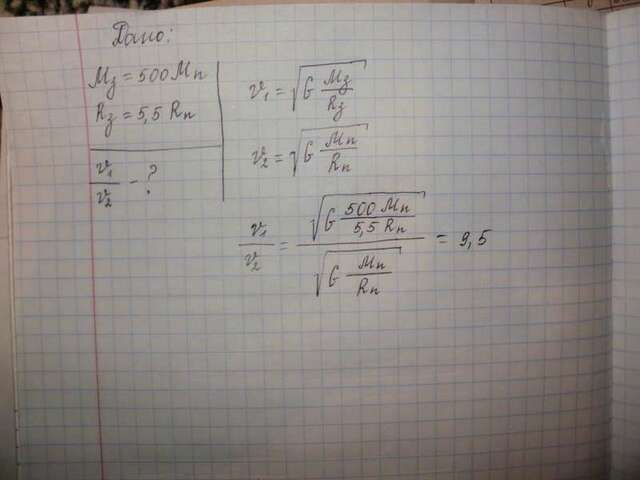 Дано:
Mз = 500 Mп
Rз = 5,5 Rп
v₁/v₂ - ?
v₁ = √(G Mз/Rз)
v₂ = √(G Mп/Rп)
v₁/v₂ = √(G 500 Mп/5,5 Rп) / √(G Mп/Rп) = 9,5